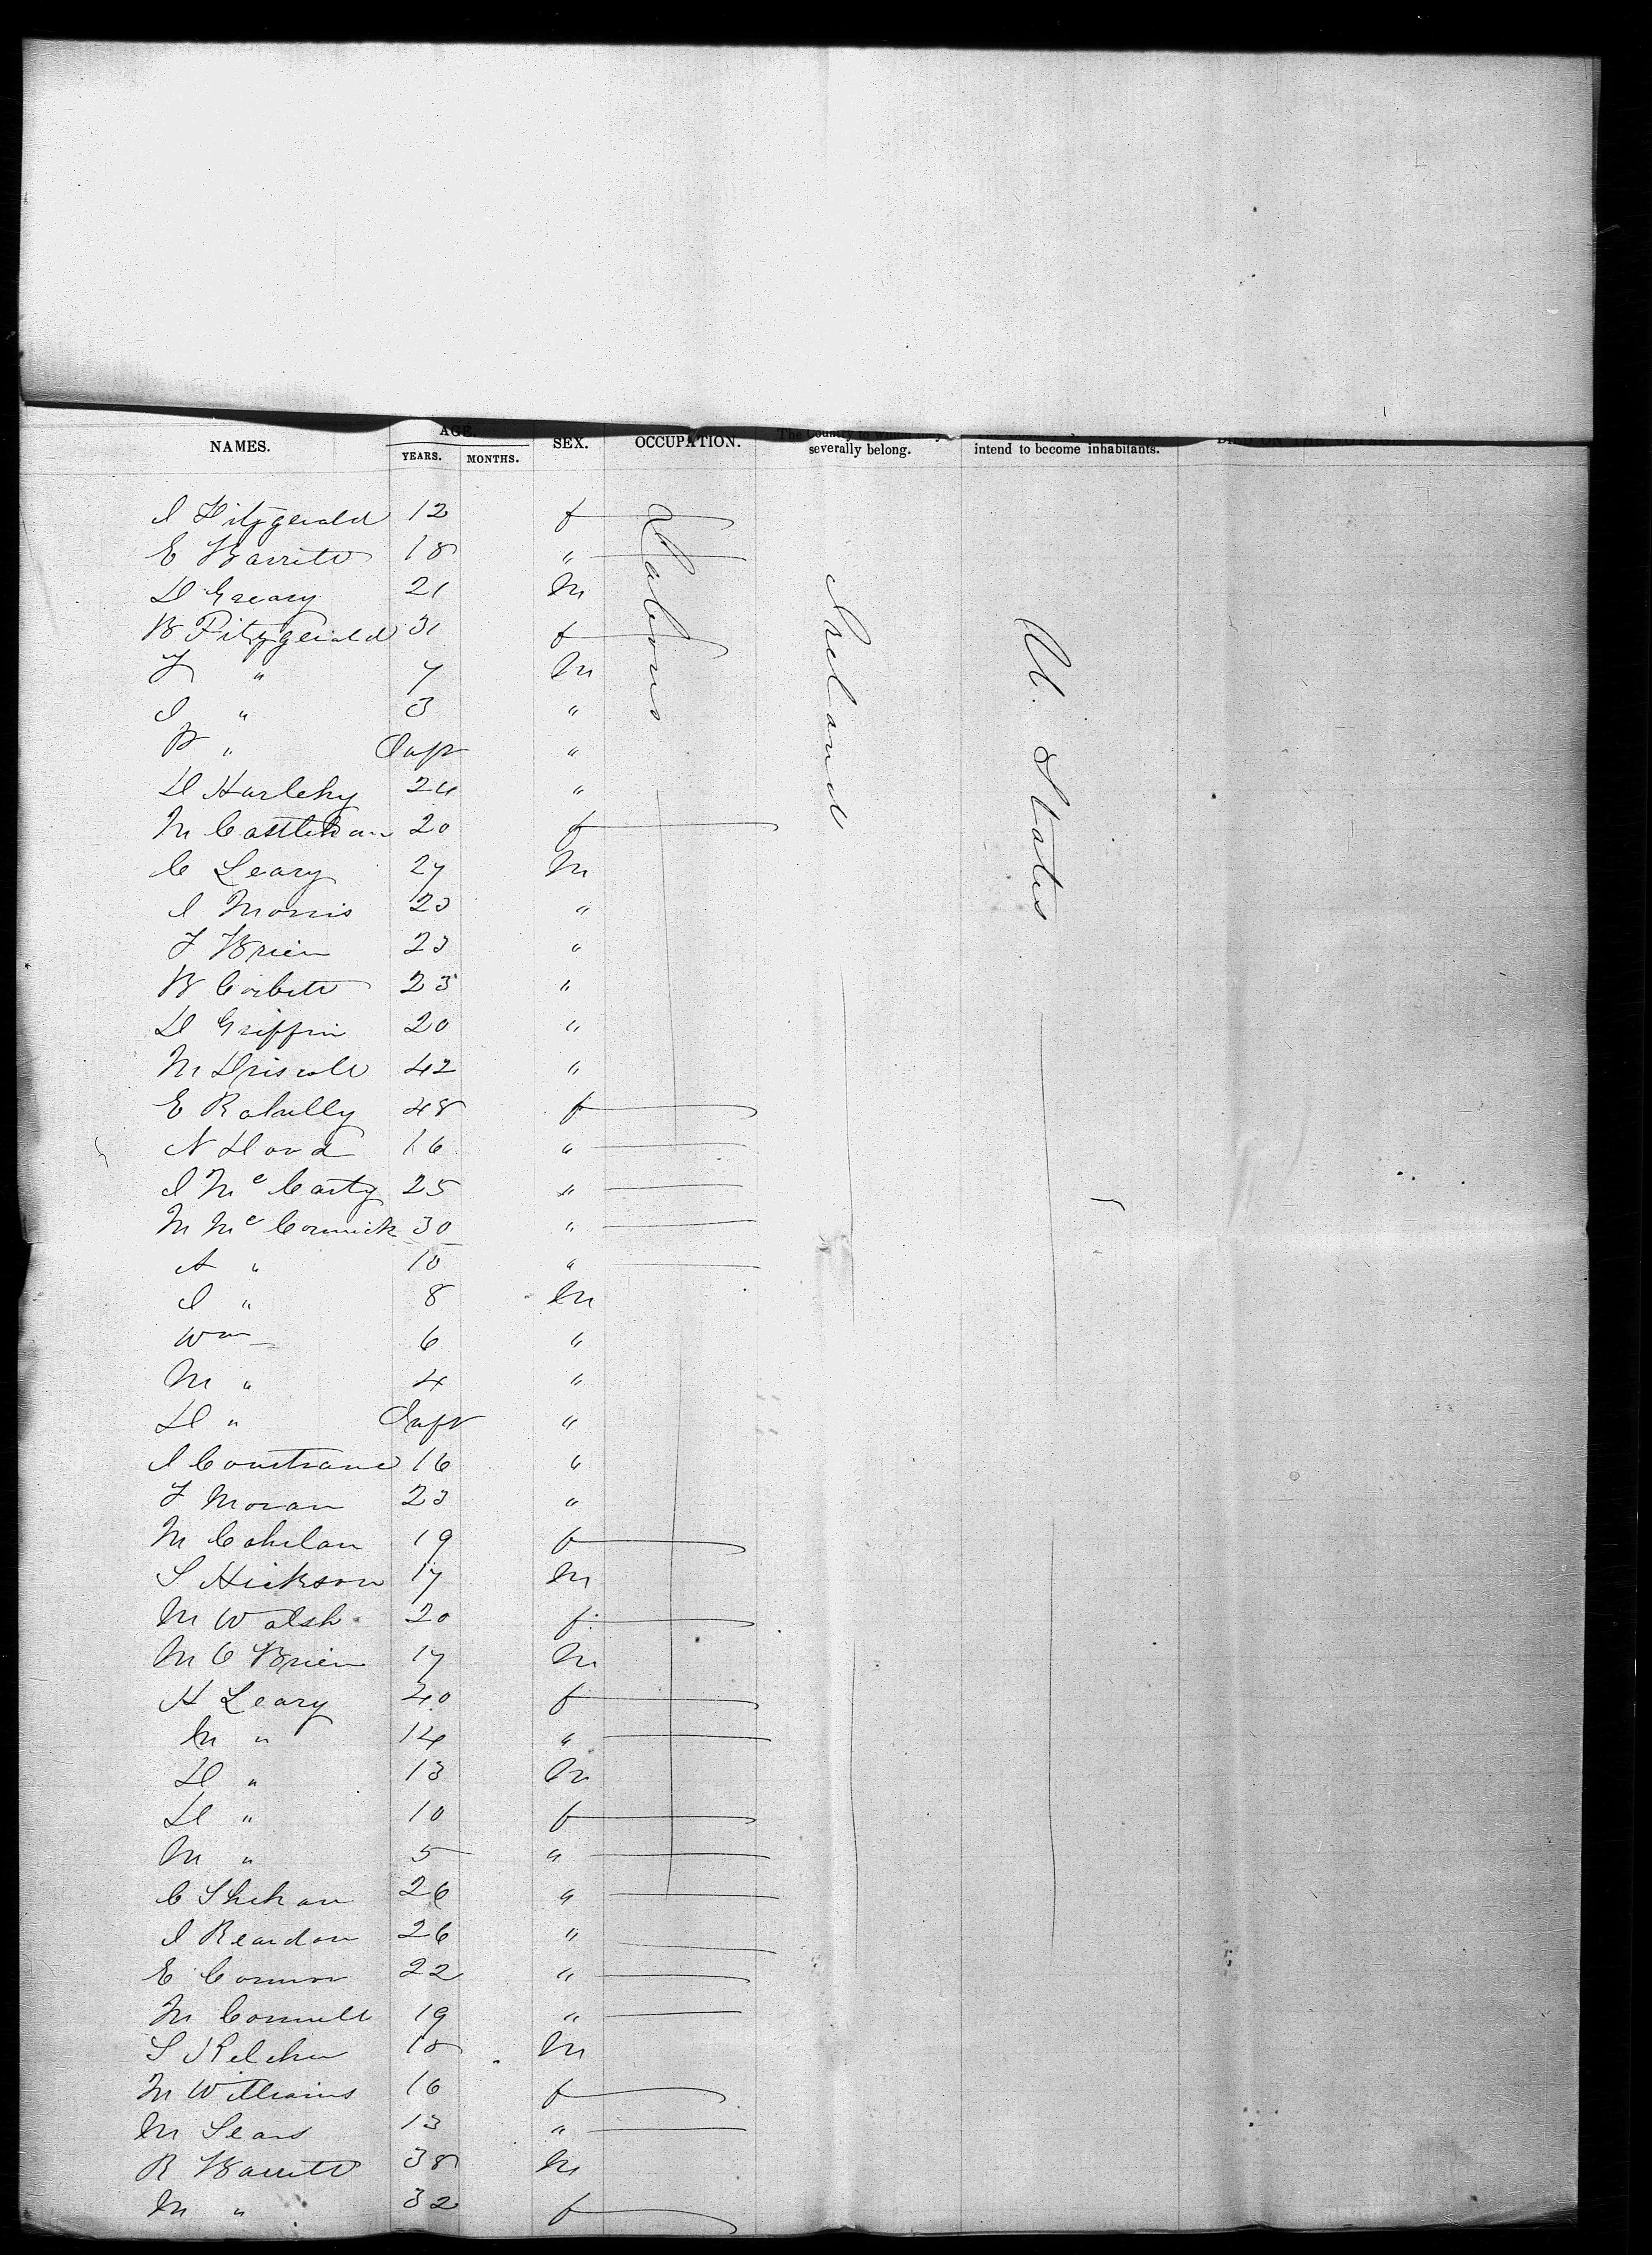 NAMES. AGE. SEX. OCCUPATION. The Country to which they severally belong. intend to become inhabitants.
YEARS. MONTHS.
Labours
Ireland
U. States
J Fitzgerald 12 f
E Barrett 18 "
D Greary 21 M
B Fitzgerald 31 f
J " 7 M
J " 3 "
P " Inft "
D Hurlehy 24 "
M 20 f
C Leary 27 M
J Morris 23 "
J Brien 23 "
B Corbett 23 "
D Griffin 20 "
M Driscoll 42 "
E Rahilly 48 f
N 16 "
J Mc Carty 25 "
M Mc Cormick 30 "
A " 10 "
J " 8 M
Wm 6 "
M " 4 "
D " Inft "
J 16 "
J Moran 23 "
M Cahelan 19 f
S Hickson 17 M
M Walsh 20 f
M O Brien 17 M
H Leary 40 f
M " 14 "
D " 13 M
D " 10 f
M " 5 "
C Shehan 26 "
J Reardon 26 "
E Connor 22 "
M Connell 19 "
S Kelcher 18 M
M Williams 16 f
M Sears 13 "
R Barrett 38 M
M " 32 f